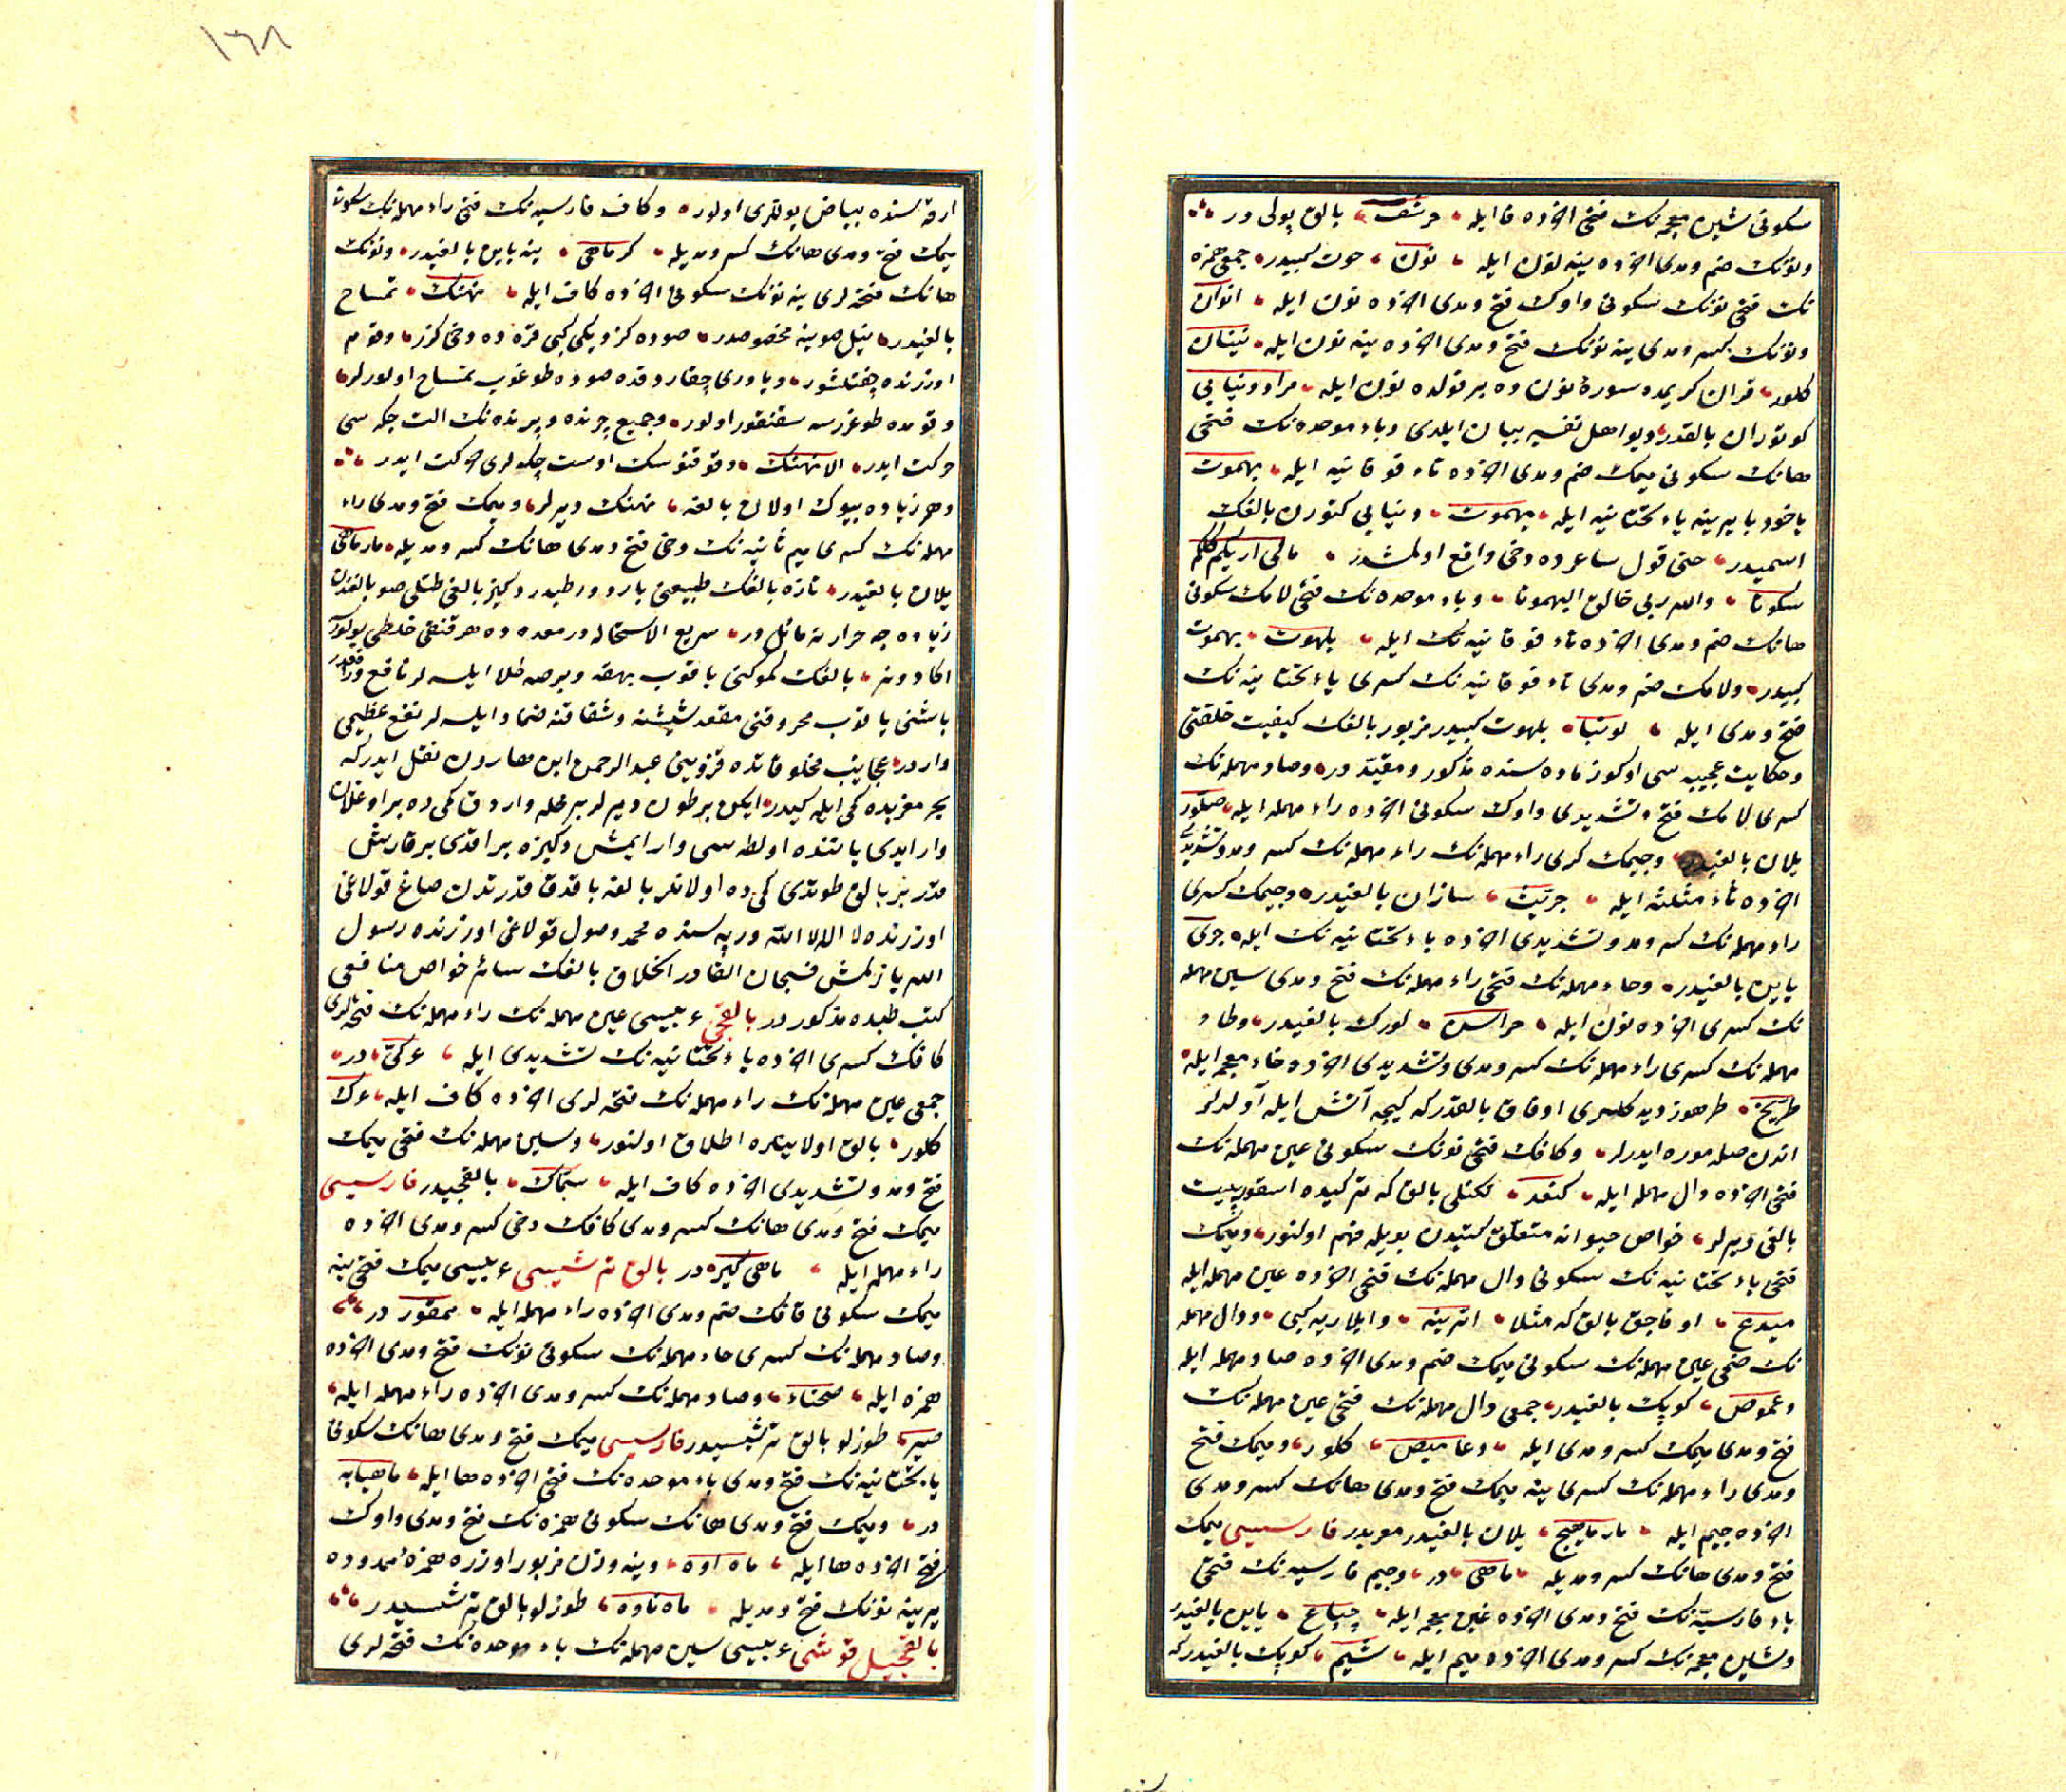 سكونی شین معجمه‌نك فتحی اخرده فا ایله حرشف بالق پولی در
ونونك ضم ومدی اخرده ینه نون ایله نون حوت كبیدر جمعی همزه
نك فتحی نونك سكونی واوك فتح ومدی اخرده نون ایله انوان
ونونك كسر ومدی ینه نونك فتح ومدی اخرده ینه نون ایله نینان
كلور قران كریمده سورۀ نون ده بر قولده نون ایله مراد دنیایی
كوتوران بالقدر دیو اهل تفسیر بیان ایلدی وباء موحده‌نك فتحی
هانك سكونی میمك ضم ومدی اخرده تاء فوقانیه ایله بهموت
یاخود با یرینه یاء تحتانیه ایله یهموت دنیایی كتورن بالغك
اسمیدر حتی قول شاعرده دخی واقع اولمشدر مالی اریكم كلكم
سكوتا والله ربی خالق الیهموتا وباء موحده‌نك فتحی لامك سكونی
هانك ضم ومدی اخرده تاء فوقانیه‌نك ایله بلهوت بهموت
كبیدر ولامك ضم ومدی تاء فوقانیه‌نك كسری یاء تحتانیه‌نك
فتح ومدی ایله لوتیا بلهوت كبیدر مزبور بالغك كیفیت خلقتی
وحكایت عجیبه سی اوكوز ماده سنده مذكور ومقیّد در وصاد مهمله‌نك
كسری لامك فتح وتشدیدی واوك سكونی اخرده راء مهمله ایله صلّور
یلان بالغیدر وجیمك كسری راء مهمله‌نك راء مهمله‌نك كسر ومد وتشدیدی
اخرده ثاء مثلثه ایله جرّیث سازان بالغیدر وجیمك كسری
راء مهمله‌نك كسر ومد وتشدیدی اخرده یاء تحتانیه‌نك ایله جری
یاین بالغیدر وحاء مهمله‌نك فتحی راء مهمله‌نك فتح ومدی سین مهمله
نك كسری اخرده نون ایله حراسن لورك بالغیدر وطاء
مهمله‌نك كسری راء مهمله‌نك كسر ومدی وتشدیدی اخرده خاء معجمه ایله
طرّیخ طرهوز دیدكلری اوفاق بالقدر كه كیجه آتش ایله آولرلر
اندن صله موره ایدرلر وكافك فتحی نونك سكونی عین مهمله‌نك
فتحی اخرده دال مهمله ایله كنعد تكنلی بالق كه تركیده اسقورپیت
بالغی دیرلر خواص حیوانه متعلق كتبدن بویله فهم اولنور ومیمك
فتحی یاء تحتانیه‌نك سكونی دال مهمله‌نك فتحی اخرده عین مهمله ایله
میدع اوفاجق بالق كه مثلا اترینه وایلاریه كبی ودال مهمله
نك ضمی عین مهمله‌نك سكونی میمك ضم ومدی اخرده صاد مهمله ایله
دعموص كوپك بالغیدر جمعی دال مهمله‌نك فتحی عین مهمله‌نك
فتح ومدی میمك كسر ومدی ایله دعامیص كلور ومیمك فتح
ومدی راء مهمله‌نك كسری ینه میمك فتح ومدی هانك كسر ومدی
اخرده جیم ایله مارماهیج یلان بالغیدر معربدر فارسیسی میمك
فتح ومدی هانك كسر ومدیله ماهی در وجیم فارسیه‌نك فتحی
باء فارسیّه‌نك فتح ومدی اخرده غین معجمه ایله چپاغ یاین بالغیدر
وشین معجمه‌نك كسر ومدی اخرده میم ایله شیم كوپك بالغیدر كه
١٦٨
ارقه سنده بیاض پوللری اولور وكاف فارسیه‌نك فتحی راء مهمله‌نك سكونی
میمك فتح ومدی هانك كسر ومدیله كرماهی ینه یاین بالغیدر ونونك
هانك فتحه لری ینه نونك سكونی اخرده كاف ایله نهنك تمساح
بالغیدر نیل صوینه مخصوصدر صوده كزدیكی كبی قره ده دخی كزر وقوم
اوزرنده چفتلشور ویاوری چقاردقده صوده طوغوب تمساح اولورلر
وقومده طوغزسه سقنقور اولور وجمیع چرنده وپرنده‌نك الت چكه سی
حركت ایدر الا نهنك وققنوسك اوست چكه لری حركت ایدر
وهم زیاده بیوك اولان بالغه نهنك دیرلر ومیمك فتح ومدی راء
مهمله‌نك كسری میم ثانیه‌نك دخی فتح ومدی هانك كسر ومدیله مارماهی
یلان بالغیدر تازه بالغك طبیعتی بارد ورطبدر دكیز بالغی طتلی صو بالغندن
زیاده جه حرارته مائلدر سریع الاستحاله در معده ده هر قنغی خلطی بولورسه
اكا دونر بالغك كموكنی یاقوب بهقه وبرصه طلا ایلسه لر نافع در
باشنی یاقوب محروقنی مقعد شیشنه وشقاقنه ضماد ایلسه لر نفع عظیمی
واردر عجایب مخلوقاتده قزوینی عبدالرحمن ابن هارون نقل ایدر كه
بحر مغربده كمی ایله كیدر ایكن برطون دیرلر بر محله واردق كمی ده بر اوغلان
وار ایدی یاننده اولطه سی وار ایمش دكیزه براقدی بر قارش
قدر بر بالق طوتدی كمی ده اولانلر بالغه باقدق قدرتدن صاغ قولاغی
اوزرنده لا اله الا الله وریه سنده محمد وصول قولاغی اوزرنده رسول
الله یازلمش فسبحان القادر الخلاق بالغك سائر خواص منافعی
كتب طبده مذكور در بالقجی عربیسی عین مهمله‌نك راء مهمله‌نك فتحه لری
كافك كسری اخرده یاء تحتانیه‌نك تشدیدی ایله عركیّ در
جمعی عین مهمله‌نك راء مهمله‌نك فتحه لری اخرده كاف ایله عرك
كلور بالق اولایتلره اطلاق اولنور وسین مهمله‌نك فتحی میمك
فتح ومد وتشدیدی اخرده كاف ایله سمّاك بالقجیدر فارسیسی
میمك فتح ومدی هانك كسر ومدی كافك دخی كسر ومدی اخرده
راء مهمله ایله ماهی كیره در بالق ترشیسی عربیسی میمك فتحی ینه
میمك سكونی قافك ضم ومدی اخرده راء مهمله ایله ممقور در
وصاد مهمله‌نك كسری حاء مهمله‌نك سكونی نونك فتح ومدی اخرده
همزه ایله صحناء وصاد مهمله‌نك كسر ومدی اخرده راء مهمله ایله
صیر طوزلو بالق ترشیسیدر فارسیسی میمك فتح ومدی هانك سكونی
یاء تحتانیه‌نك فتح ومدی باء موحده‌نك فتحی اخرده ها ایله ماهیابه
در ومیمك فتح ومدی هانك سكونی همزه‌نك فتح ومدی واوك
فتحی اخرده ها ایله ماه اوه وینه وزن مزبور اوزره همزۀ ممدوده
یرینه نونك فتح ومدیله ماه ناوه طوزلو بالق ترشیسیدر
بالقجیل قوشی عربیسی سین مهمله‌نك باء موحده‌نك فتحه لری